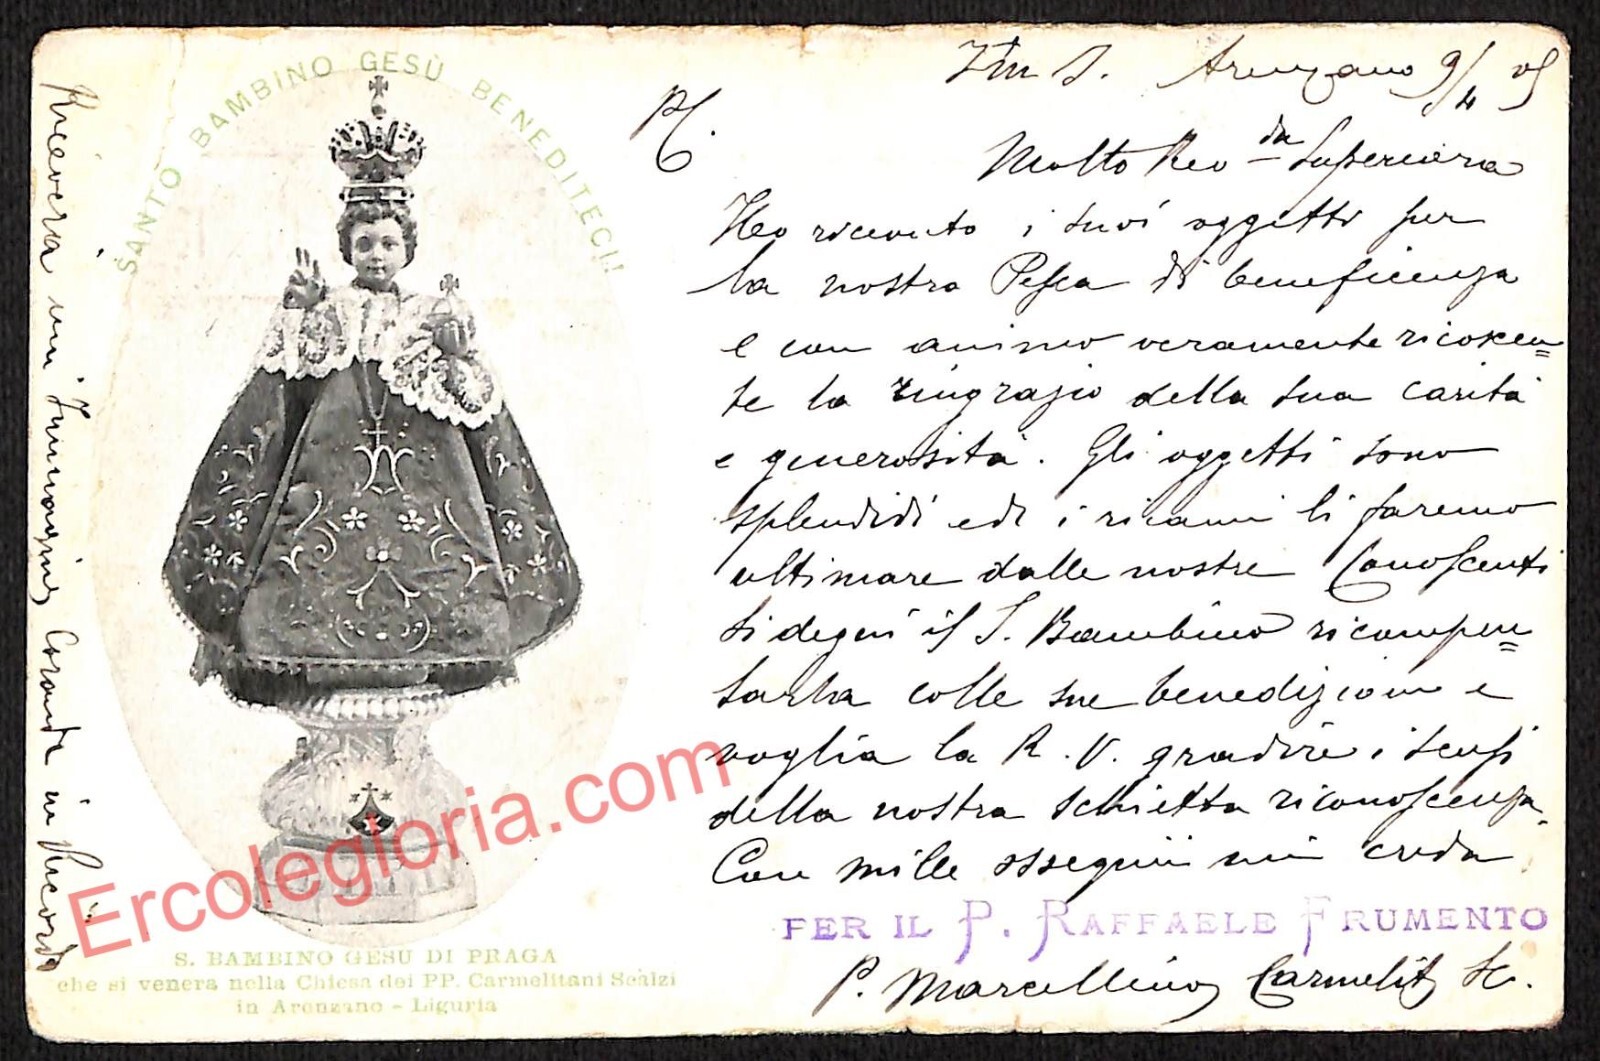 SANTO BAMBINO GESÙ BENEDITECI!!
Arenzano 9/4 05
Molto Rev.da Superiora
Ho ricevuto i suoi oggetti per
la nostra Pesca di beneficenza
e con animo veramente ricoscen=
te la ringrazio della sua carità
e generosità. Gli oggetti sono
splendidi ed i ricami li faremo
ultimare dalle nostre Conoscenti
Si degni il S. Bambino ricompen=
sarla colle sue benedizioni e
voglia la R. V. gradire i sensi
della nostra schietta riconoscenza.
Con mille ossequii mi creda
PER IL P. RAFFAELE FRUMENTO
P. Marcellino Carmelit Sc.
Riceverà un'Immagine Corona in Ricordo
S. BAMBINO GESU DI PRAGA
che si venera nella Chiesa dei PP. Carmelitani Scalzi
in Arenzano - Liguria
Ercolegloria.com